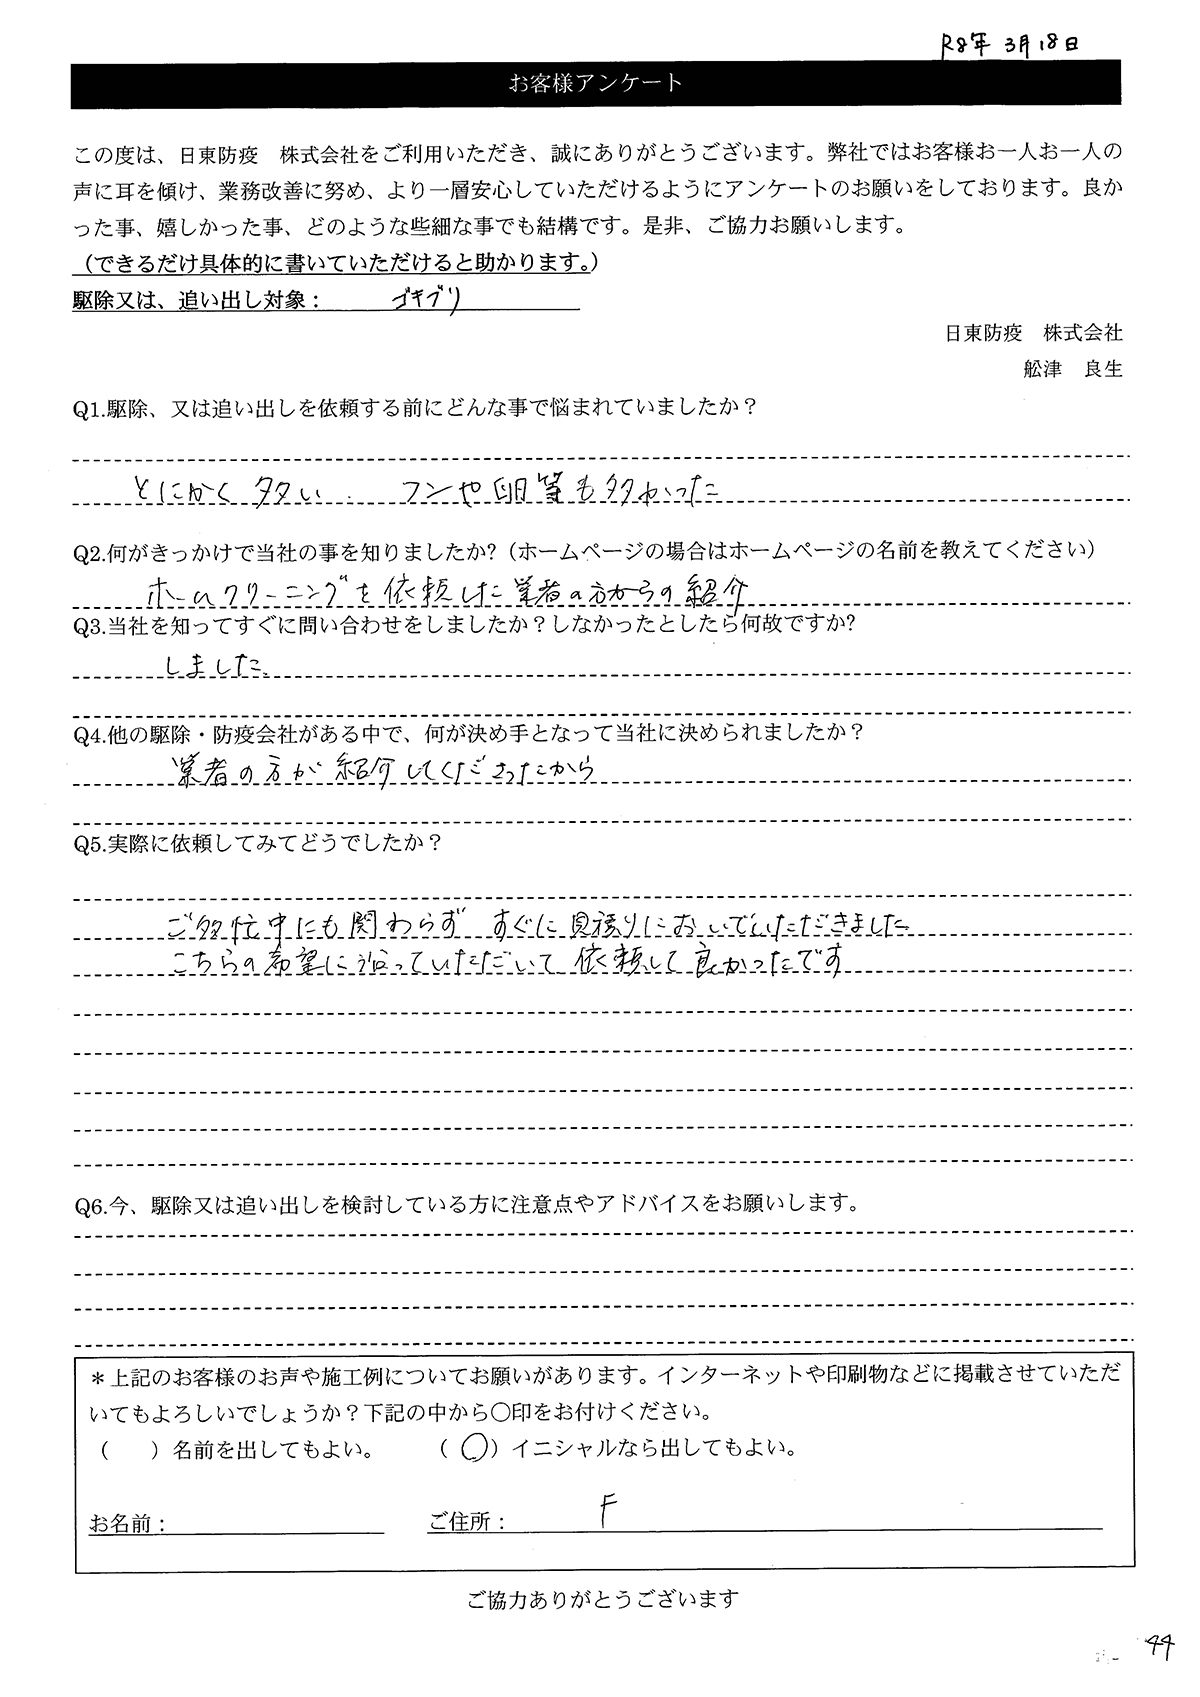 R8年 3月18日
お客様アンケート
この度は、日東防疫　株式会社をご利用いただき、誠にありがとうございます。弊社ではお客様お一人お一人の
声に耳を傾け、業務改善に努め、より一層安心していただけるようにアンケートのお願いをしております。良か
った事、嬉しかった事、どのような些細な事でも結構です。是非、ご協力お願いします。
（できるだけ具体的に書いていただけると助かります。）
駆除又は、追い出し対象： ゴキブリ
日東防疫　株式会社
舩津　良生
Q1.駆除、又は追い出しを依頼する前にどんな事で悩まれていましたか？
とにかく多い．フンや卵等も多かった
Q2.何がきっかけで当社の事を知りましたか?（ホームページの場合はホームページの名前を教えてください）
ホームクリーニングを依頼した業者の方からの紹介
Q3.当社を知ってすぐに問い合わせをしましたか？しなかったとしたら何故ですか?
しました.
Q4.他の駆除・防疫会社がある中で、何が決め手となって当社に決められましたか？
業者の方が紹介してくださったから
Q5.実際に依頼してみてどうでしたか？
ご多忙中にも関わらず すぐに見積りにおいでいただきました
こちらの希望に沿っていただいて 依頼して良かったです
Q6.今、駆除又は追い出しを検討している方に注意点やアドバイスをお願いします。
＊上記のお客様のお声や施工例についてお願いがあります。インターネットや印刷物などに掲載させていただ
いてもよろしいでしょうか？下記の中から〇印をお付けください。
（　　）名前を出してもよい。　　（〇）イニシャルなら出してもよい。
お名前：　　　ご住所： F
ご協力ありがとうございます
44